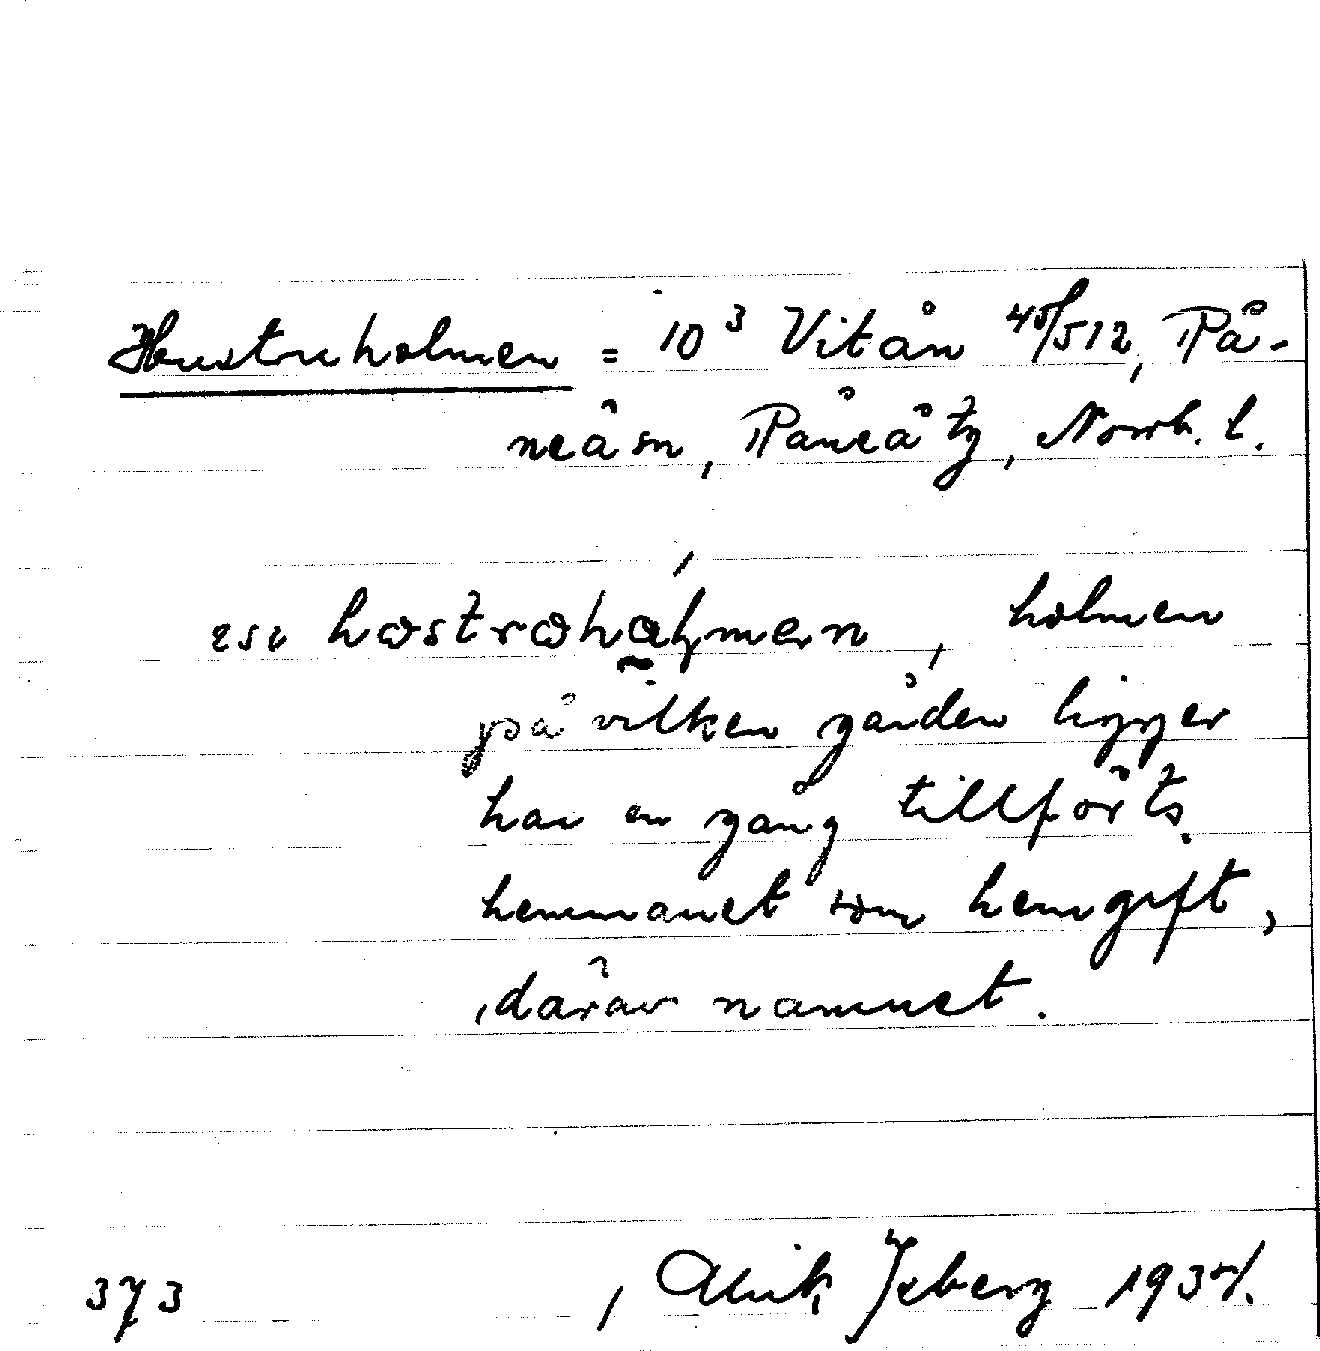 Hustruholmen = 10³ Vitån 45/512, Rå-
neå sn, Råneå tg, Norrb. l.
hɷstrɷhaḷmen, holmen
på vilken gården ligger
har en gång tillförts
hemmanet som hemgift,
därav namnet.
373 Alrik Ysberg 1935.